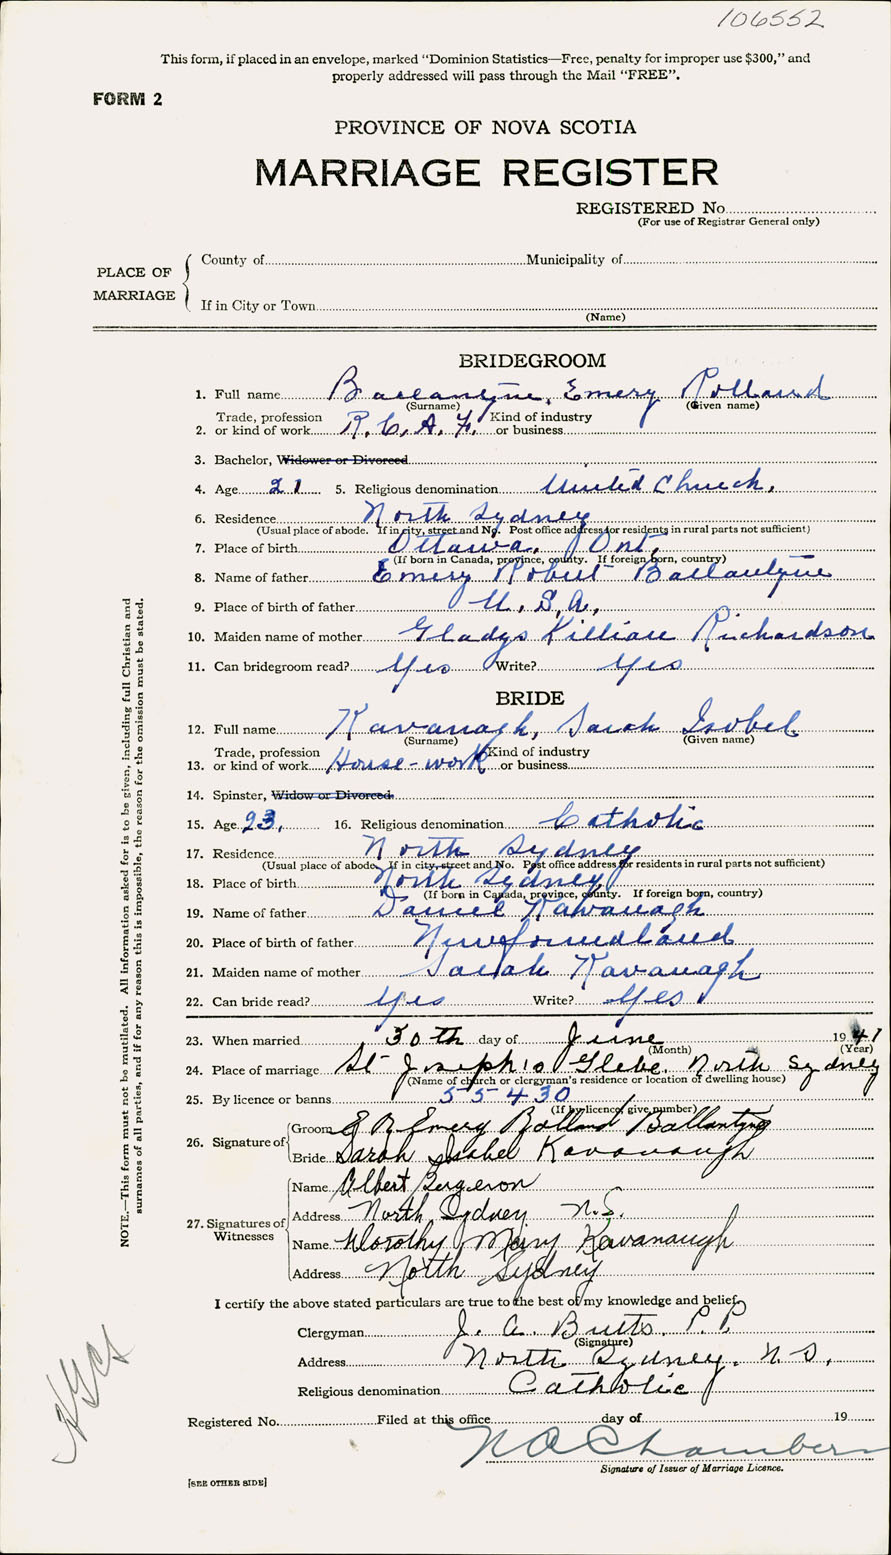 106552
This form, if placed in an envelope, marked "Dominion Statistics—Free, penalty for improper use $300," and
properly addressed will pass through the Mail "FREE".
FORM 2
PROVINCE OF NOVA SCOTIA
MARRIAGE REGISTER
REGISTERED No.
(For use of Registrar General only)
PLACE OF MARRIAGE
County of Municipality of
If in City or Town
(Name)
BRIDEGROOM
1. Full name Ballantyne, Emery Rolland
(Surname) (Given name)
2. Trade, profession or kind of work R. C. A. F. Kind of industry or business
3. Bachelor, Widower or Divorced
4. Age 21 5. Religious denomination United Church.
6. Residence North Sydney
(Usual place of abode. If in city, street and No. Post office address for residents in rural parts not sufficient)
7. Place of birth Ottawa, Ont.
(If born in Canada, province, county. If foreign born, country)
8. Name of father Emery Robert Ballantyne
9. Place of birth of father U. S. A.
10. Maiden name of mother Gladys Killian Richardson
11. Can bridegroom read? Yes Write? Yes
BRIDE
12. Full name Kavanagh, Sarah Isobel
(Surname) (Given name)
13. Trade, profession or kind of work House-work Kind of industry or business
14. Spinster, Widow or Divorced
15. Age 23. 16. Religious denomination Catholic
17. Residence North Sydney
(Usual place of abode. If in city, street and No. Post office address for residents in rural parts not sufficient)
18. Place of birth North Sydney
(If born in Canada, province, county. If foreign born, country)
19. Name of father Daniel Kavanagh
20. Place of birth of father Newfoundland
21. Maiden name of mother Sarah Kavanagh
22. Can bride read? Yes Write? Yes
23. When married 30th day of June 1941
(Month) (Year)
24. Place of marriage St Joseph's Glebe, North Sydney
(Name of church or clergyman's residence or location of dwelling house)
25. By licence or banns 55430
(If by licence, give number)
26. Signature of
Groom E R Emery Rolland Ballantyne
Bride Sarah Isabel Kavanaugh
27. Signatures of Witnesses
Name Albert Bergeron
Address North Sydney N.S.
Name Dorothy Mary Kavanaugh
Address North Sydney
I certify the above stated particulars are true to the best of my knowledge and belief.
Clergyman J. A. Butts. P. P.
(Signature)
Address North Sydney. N. S.
Religious denomination Catholic
Registered No. Filed at this office day of 19
N A Chambers
Signature of Issuer of Marriage Licence.
[SEE OTHER SIDE]
NOTE.—This form must not be mutilated. All information asked for is to be given, including full Christian and
surnames of all parties, and if for any reason this is impossible, the reason for the omission must be stated.